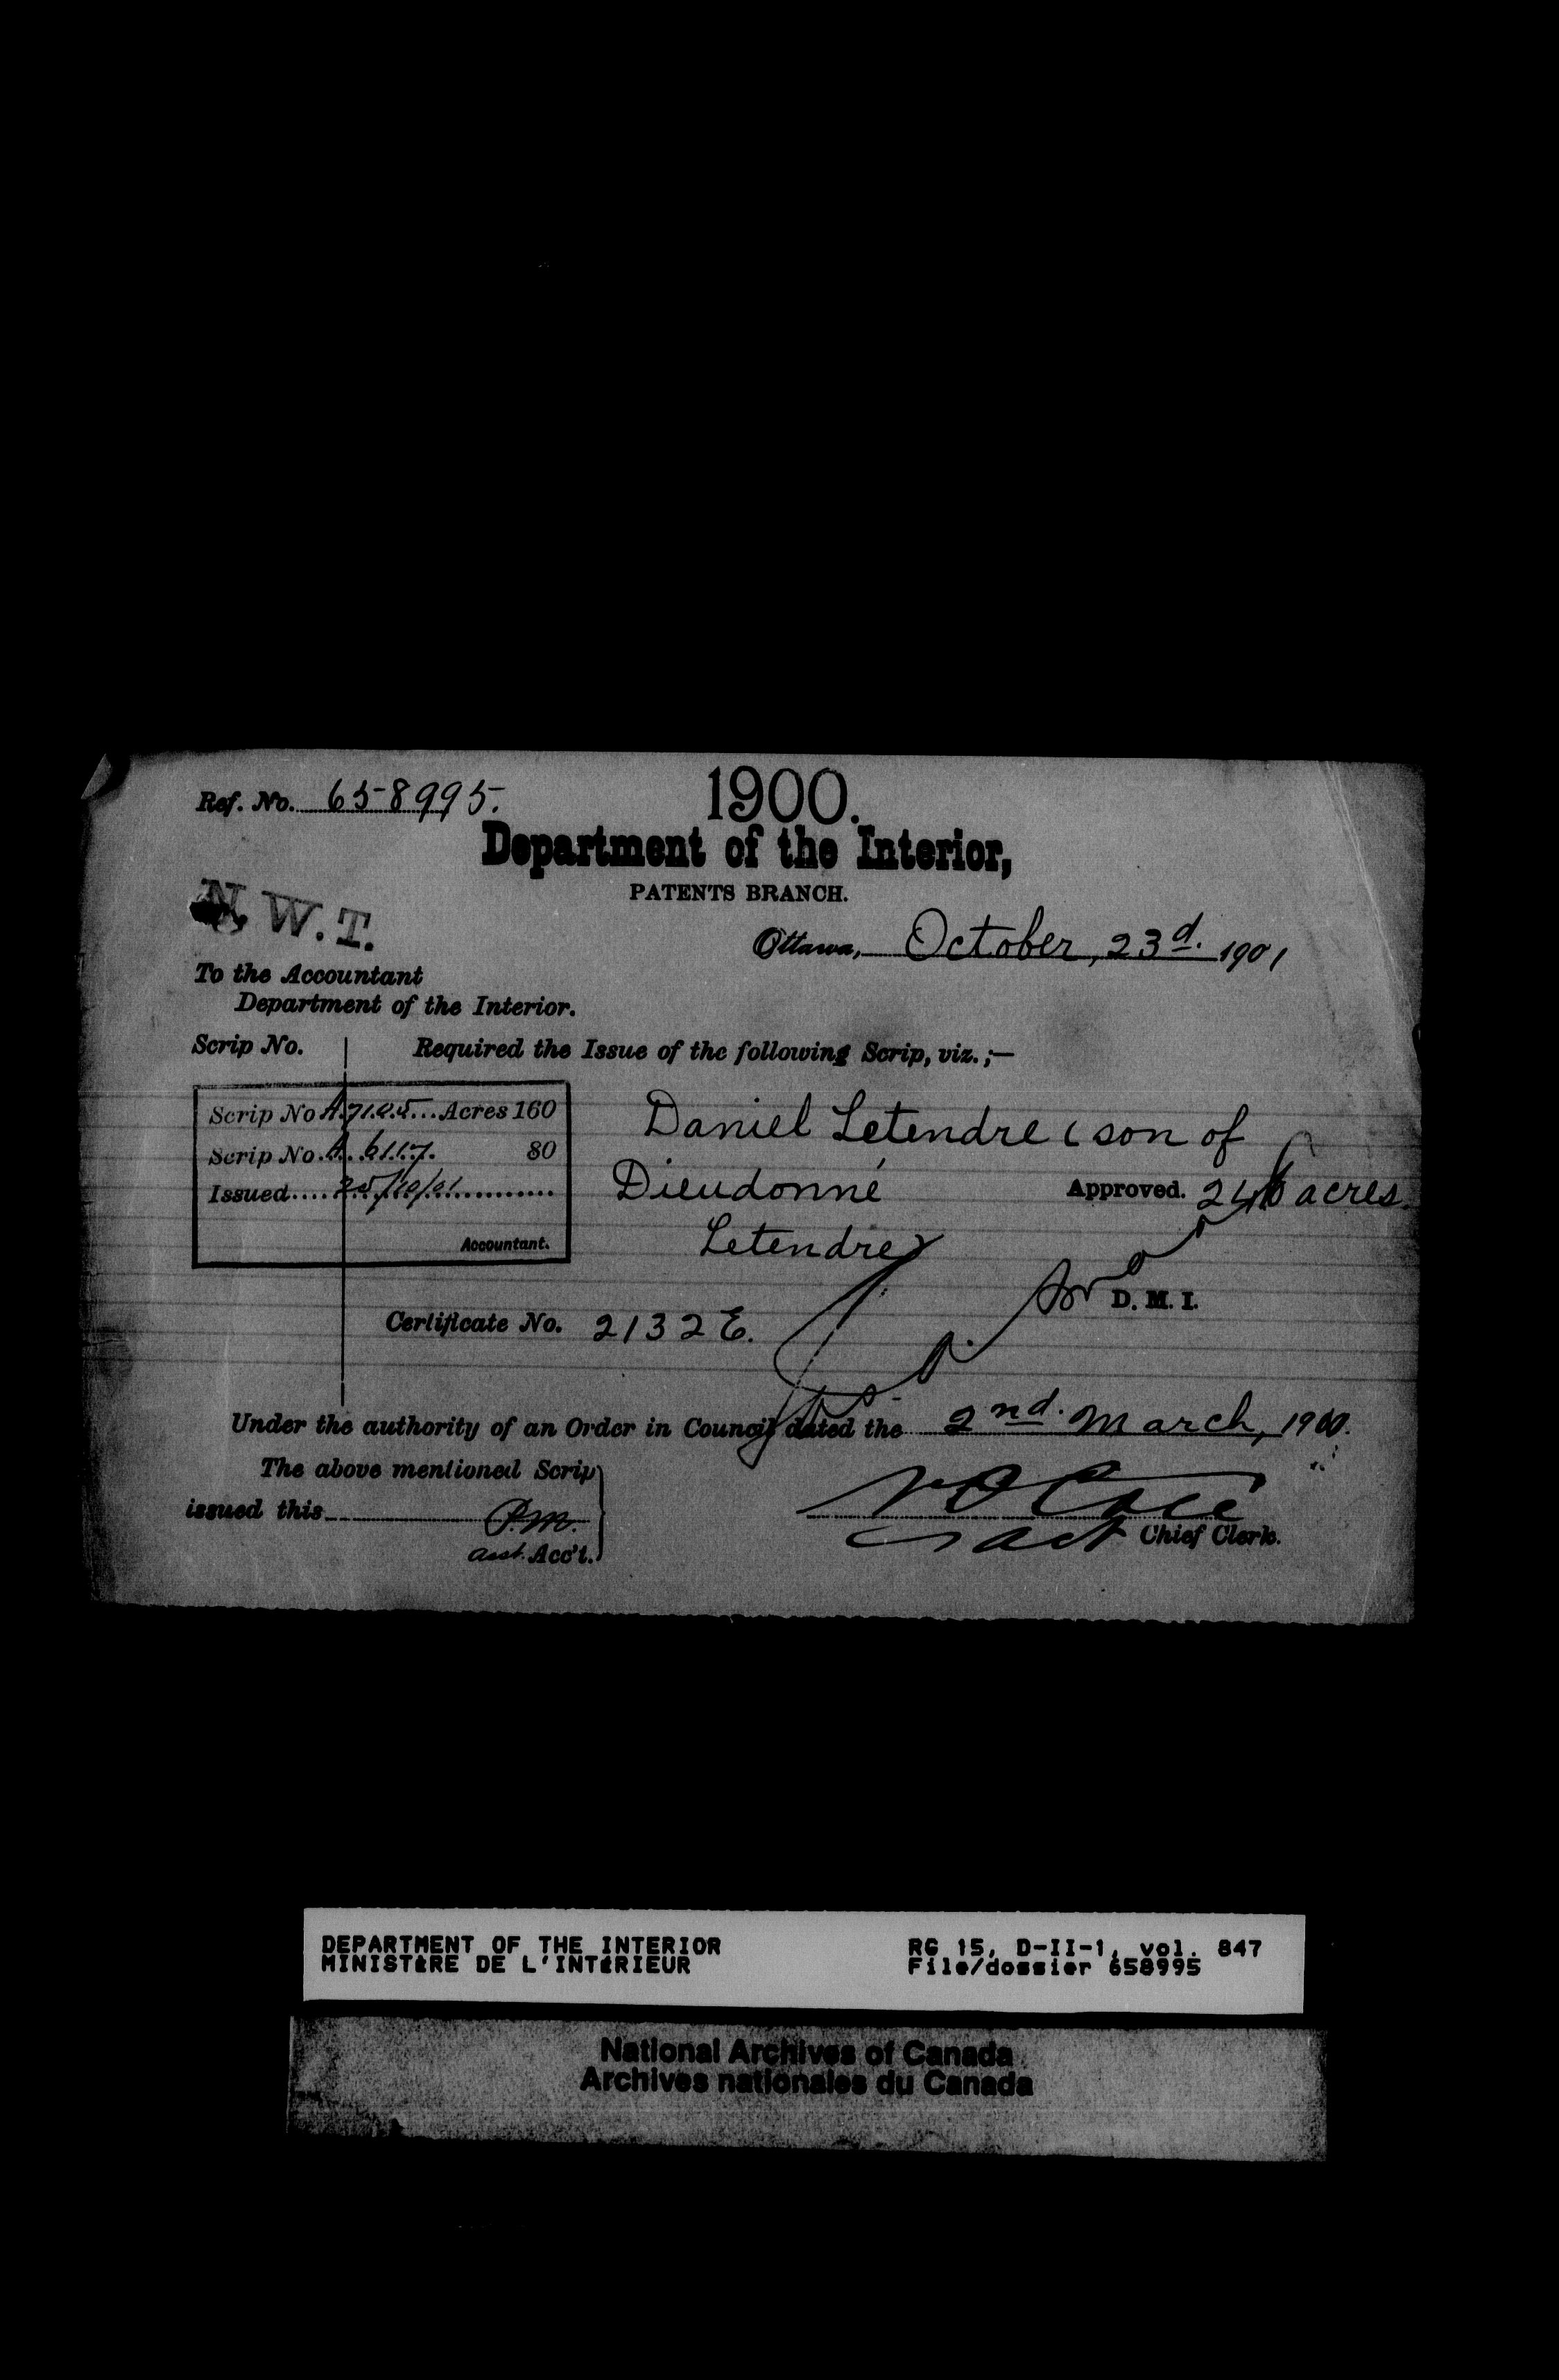 Ref. No. 658995.
1900.
Department of the Interior,
PATENTS BRANCH.
N.W.T.
Ottawa, October, 23d. 1901
To the Accountant
Department of the Interior.
Scrip No. Required the Issue of the following Scrip, viz.;—
Scrip No A. Acres 160
Scrip No. A. 6117. 80
Issued 25/10/01
Accountant.
Daniel Letendre (son of
Dieudonné
Letendre)
Approved. 240 acres.
D. M. I.
Certificate No. 2132 E.
Under the authority of an Order in Council dated the 2nd. March, 1900.
The above mentioned Scrip
issued this P.M.
asst. Acc't.
Chief Clerk.
DEPARTMENT OF THE INTERIOR
MINISTÈRE DE L'INTÉRIEUR
RG 15, D-II-1, vol. 847
File/dossier 658995
National Archives of Canada
Archives nationales du Canada